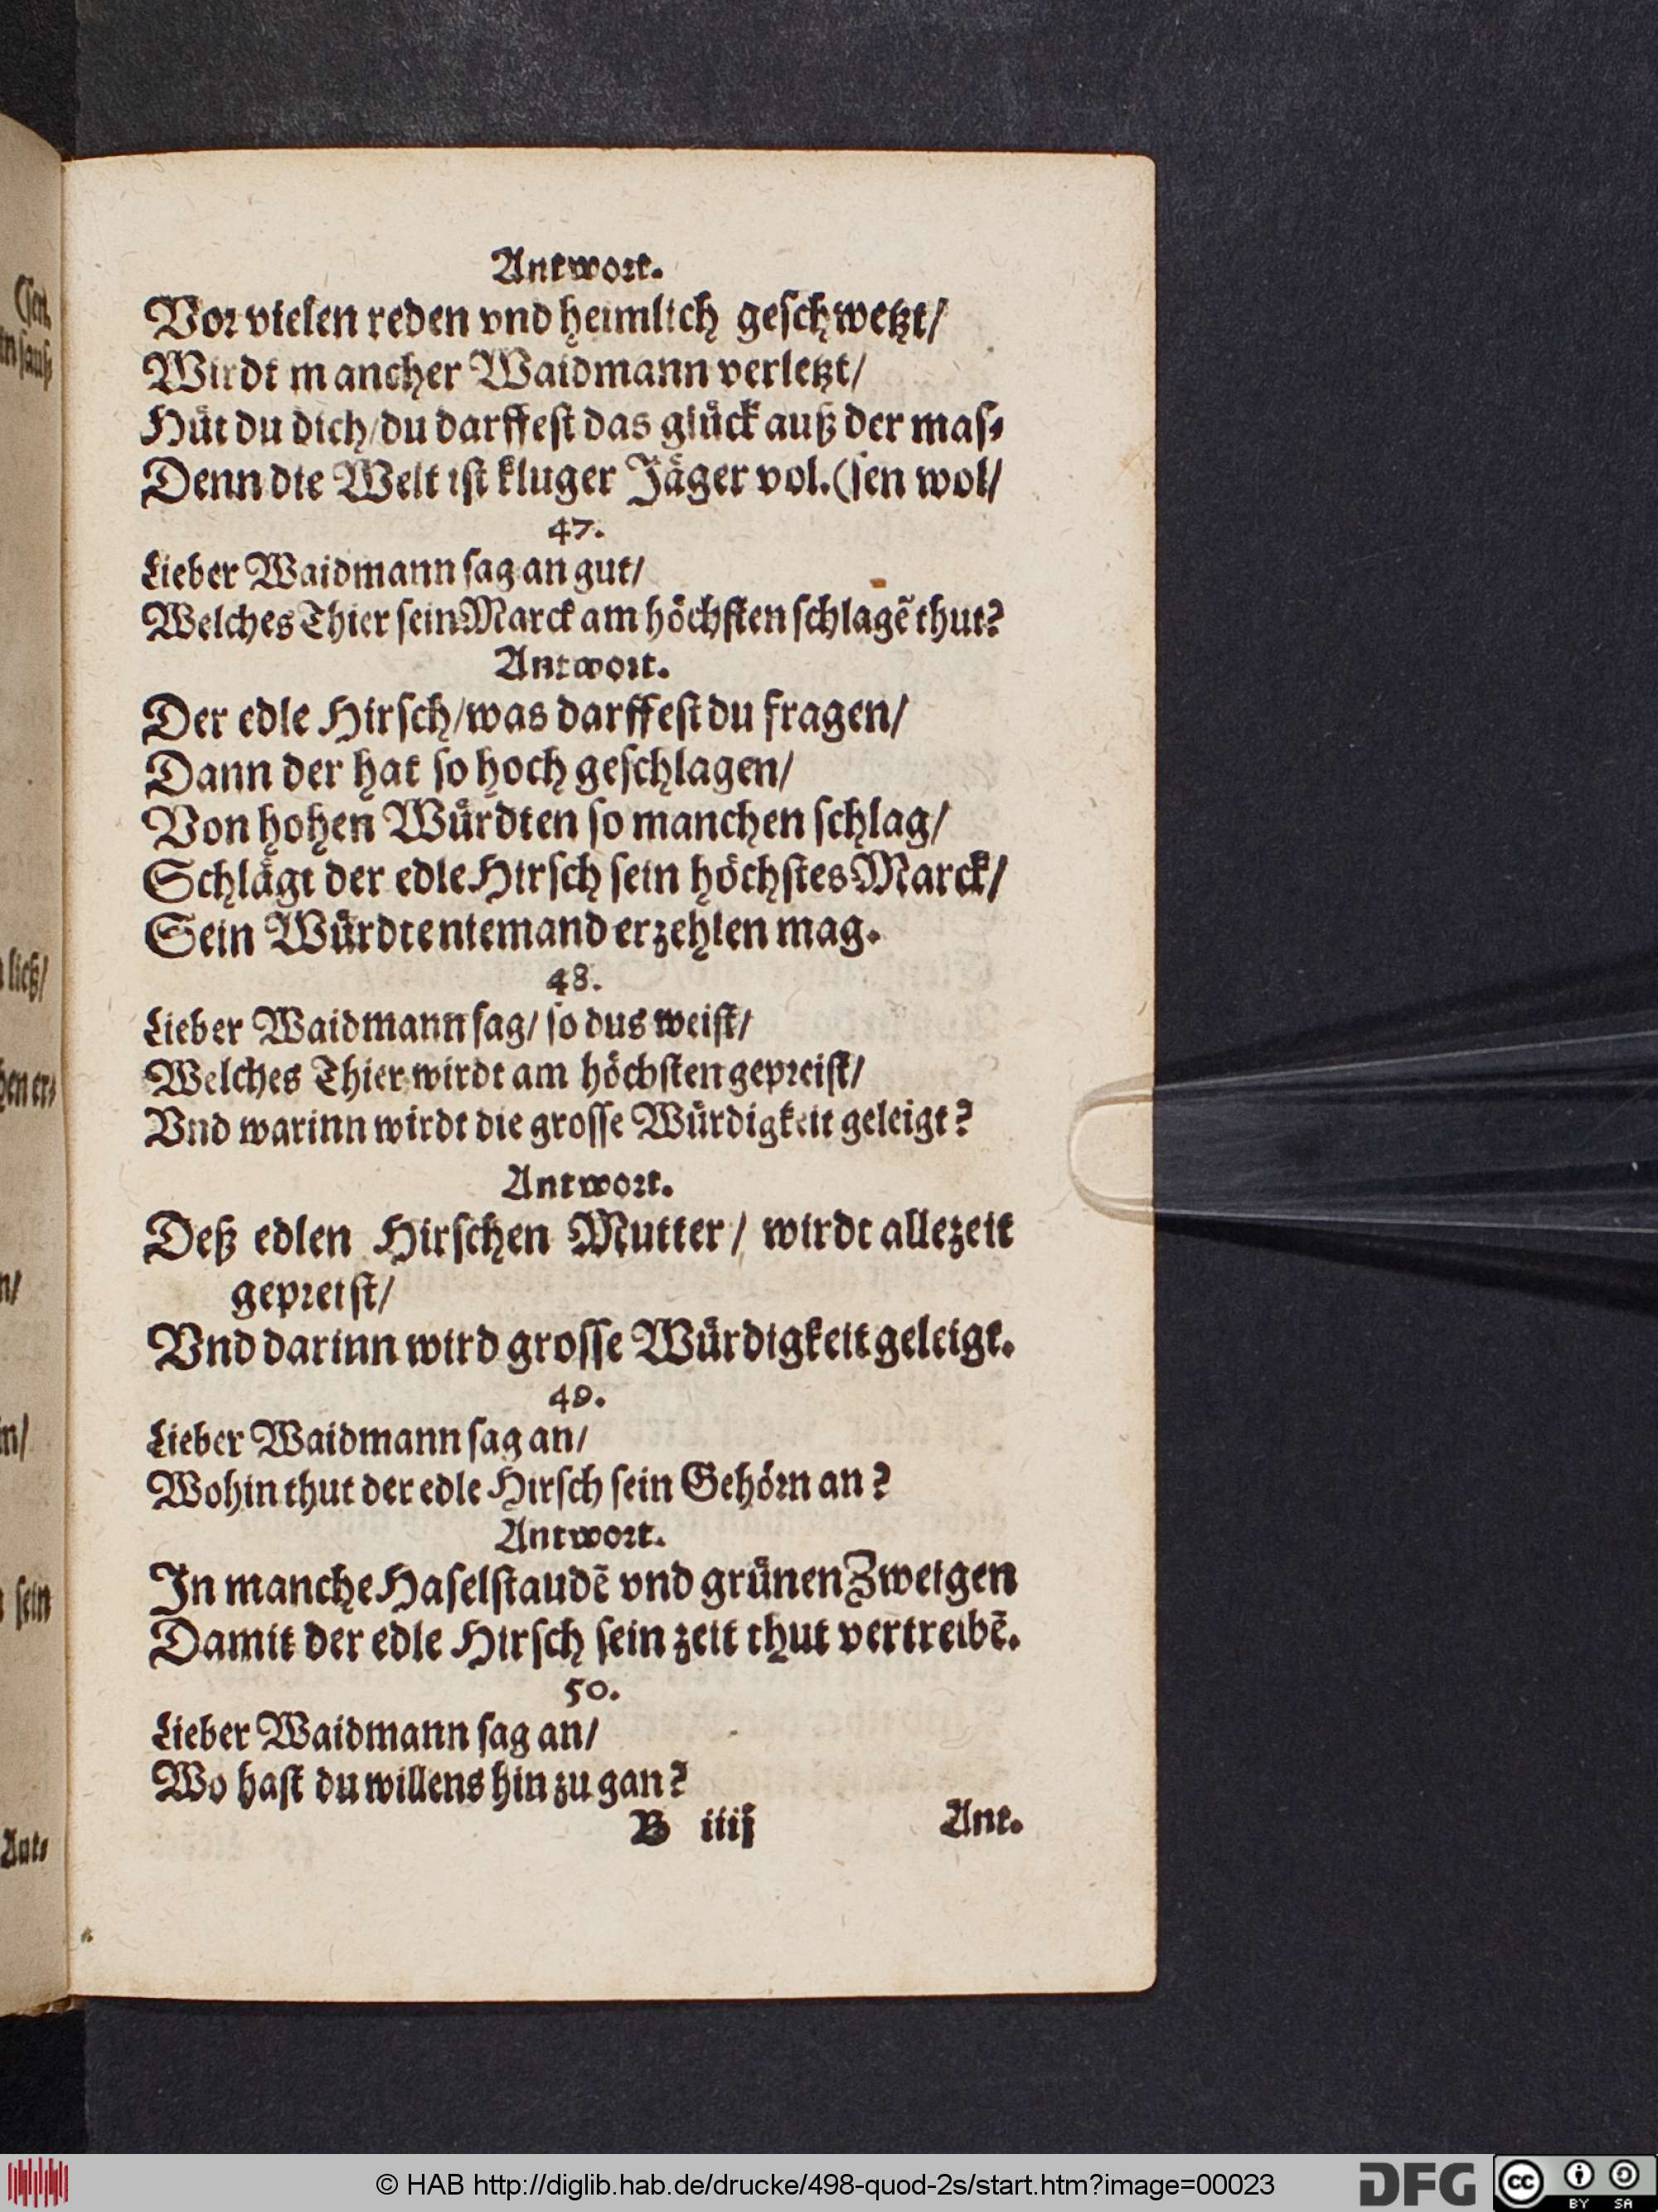 Antwort.
Vor vielen reden vnd heimlich geschwetzt/
Wirdt mancher Waidmann verletzt/
Huͤt du dich/du darffest das gluͤck auß der mas⸗
Denn die Welt ist kluger Jaͤger vol.(sen wol/
47.
Lieber Waidmann sag an gut/
Welches Thier sein Marck am hoͤchsten schlagẽ thut?
Antwort.
Der edle Hirsch/was darffest du fragen/
Dann der hat so hoch geschlagen/
Von hohen Wuͤrdten so manchen schlag/
Schlaͤgt der edle Hirsch sein hoͤchstes Marck/
Sein Wuͤrdte niemand erzehlen mag.
48.
Lieber Waidmann sag/ so dus weist/
Welches Thier wirdt am hoͤchsten gepreist/
Vnd warinn wirdt die grosse Wuͤrdigkeit geleigt?
Antwort.
Deß edlen Hirschen Mutter/ wirdt allezeit
gepreist/
Vnd darinn wird grosse Wuͤrdigkeit geleigt.
49.
Lieber Waidmann sag an/
Wohin thut der edle Hirsch sein Gehoͤrn an?
Antwort.
In manche Haselstaudẽ vnd gruͤnen Zweigen
Damit der edle Hirsch sein zeit thut vertreibẽ.
50.
Lieber Waidmann sag an/
Wo hast du willens hin zu gan?
B iiij
Ant.
© HAB http://diglib.hab.de/drucke/498-quod-2s/start.htm?image=00023
DFG
cc
BY SA